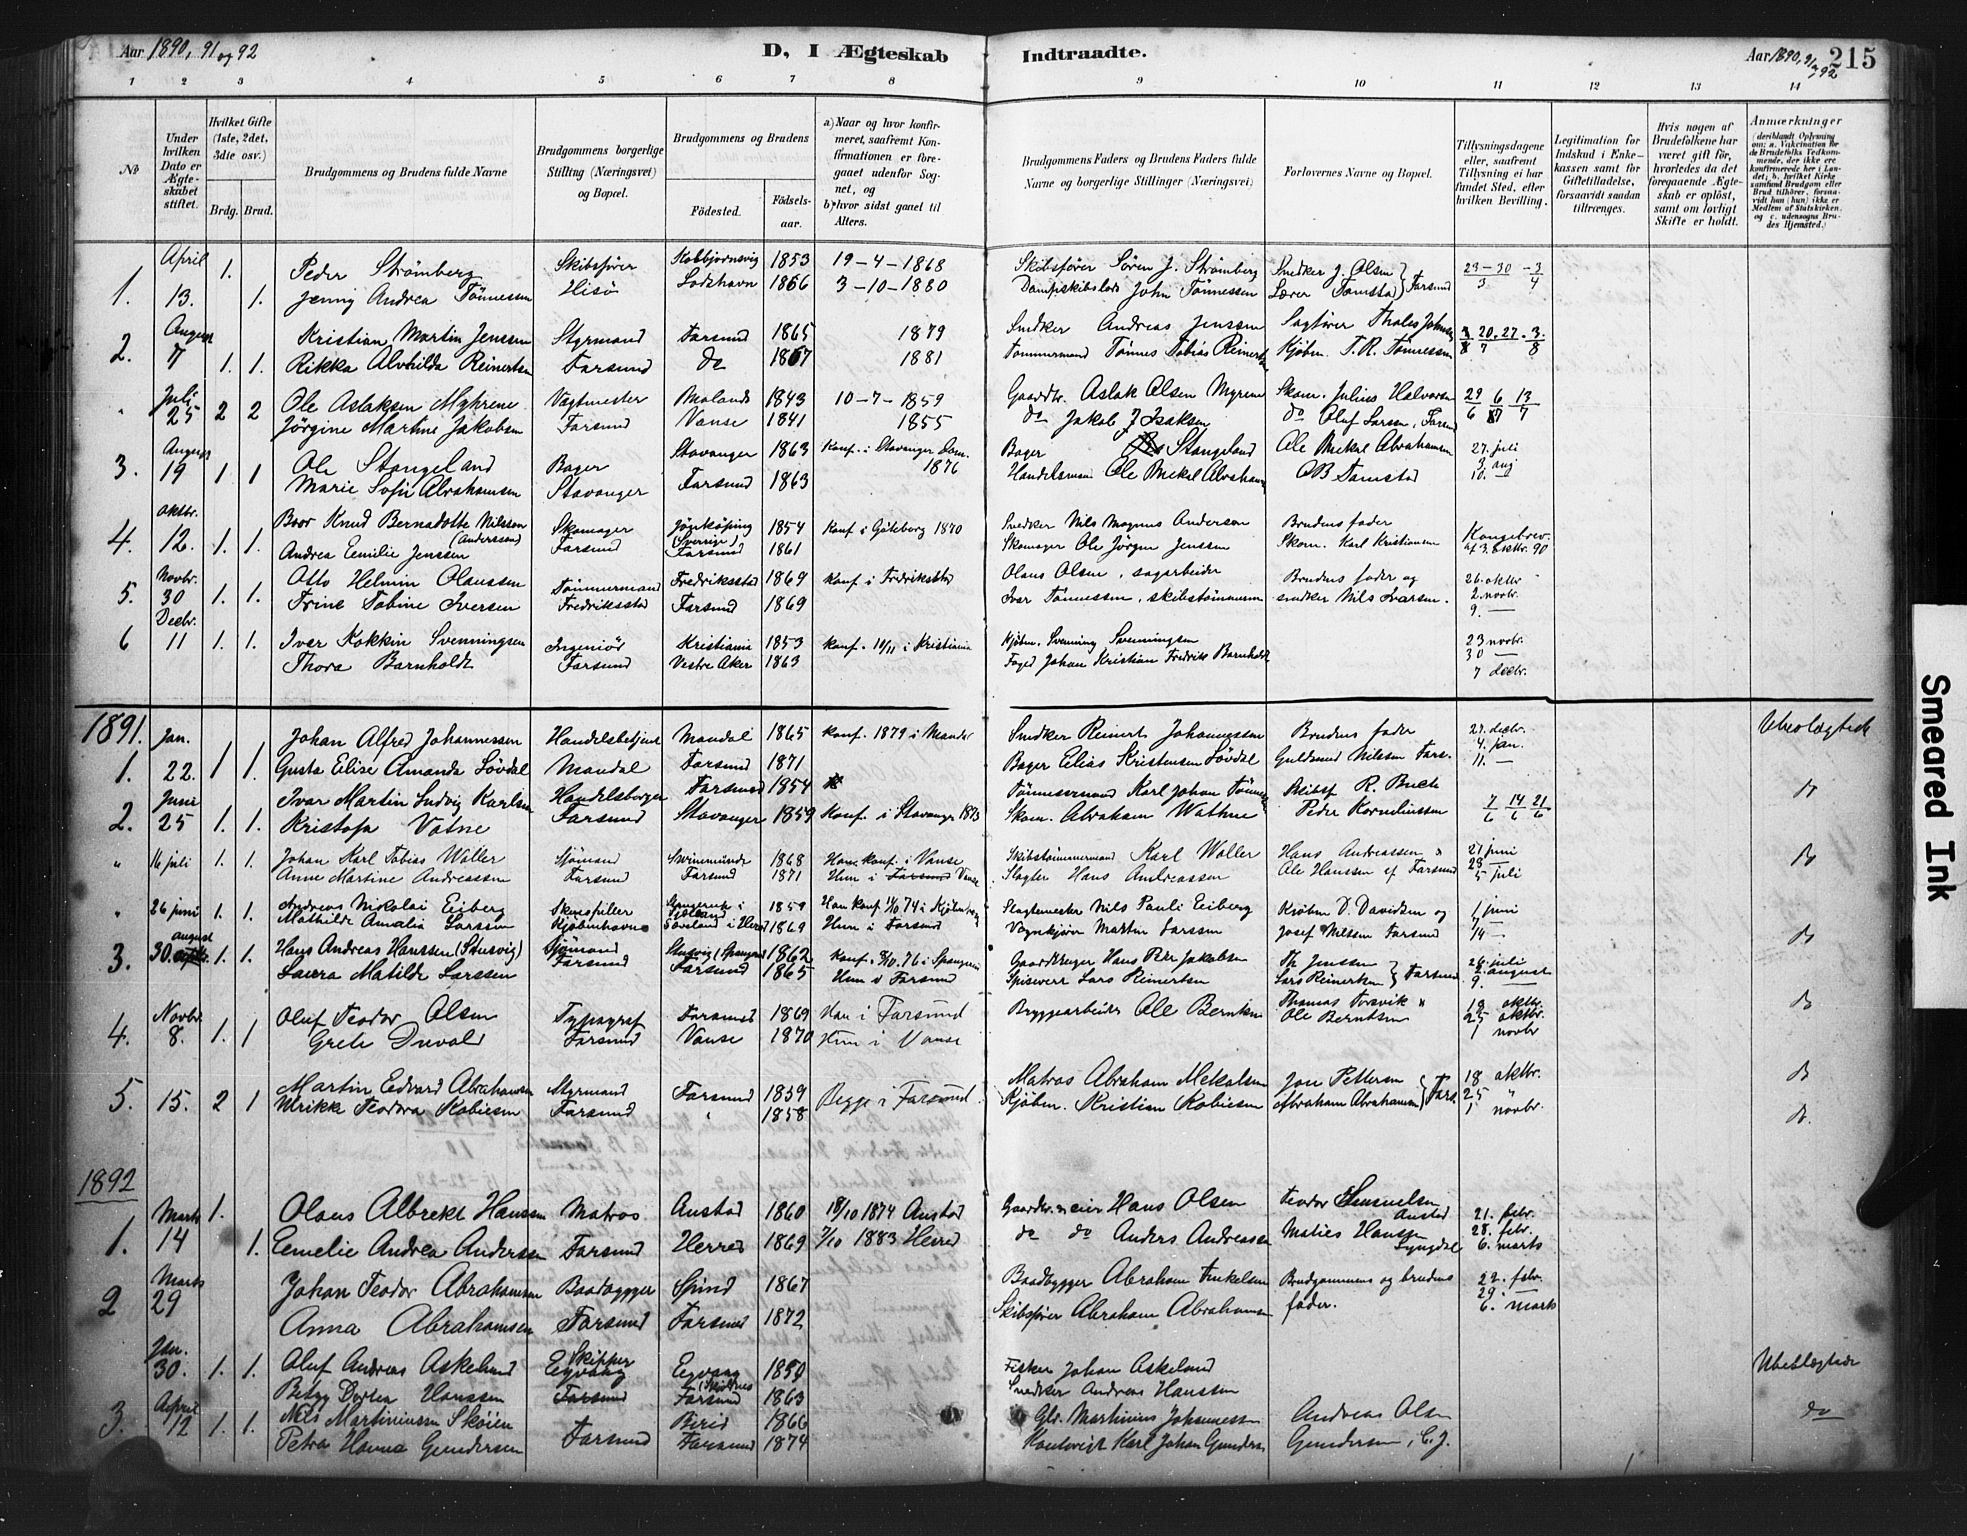 Aar 1890, 91 og 92
D, I Ægteskab Indtraadte.
Aar 1890, 91 og 92
215
1 2 3 4 5 6 7 8 9 10 11 12 13 14
№
Under hvilken Dato er Ægteskabet stiftet.
Hvilket Gifte (1ste, 2det, 3die osv.)
Brdg. Brud.
Brudgommens og Brudens fulde Navne
Brudgommens borgerlige Stilling (Næringsvei) og Bopæl.
Brudgommens og Brudens
Fødested.
Fødselsaar.
a) Naar og hvor konfirmeret, saafremt Konfirmationen er foregaaet udenfor Sognet, og
b) hvor sidst gaaet til Alters.
Brudgommens Faders og Brudens Faders fulde Navne og borgerlige Stillinger (Næringsvei)
Forlovernes Navne og Bopæl.
Tillysningsdagene eller, saafremt Tillysning ei har fundet Sted, efter hvilken Bevilling.
Legitimation for Indskud i Enkekassen samt for Giftetilladelse, forsaavidt saadan tiltrænges.
Hvis nogen af Brudefolkene har været gift før, hvorledes da det foregaaende Ægteskab er opløst, samt om lovligt Skifte er holdt.
Anmærkninger
(deriblandt Oplysning om: a. Vakcination for de Brudefolks Vedkommende, der ikke ere konfirmerede her i Landet; b. hvilket Kirkesamfund Brudgom eller Brud tilhører, forsaavidt han (hun) ikke er Medlem af Statskirken, og c. udensogns Brudes Hjemsted.)
1. April 13. 1. Peder Strømberg Skibsfører Kobbjornsvig 1853 19-4-1868 Skibsfører Søren J. Strømberg Snedker J. Olsen 23-30-3
1. Jenny Andrea Tønnessen Hisø Lodshavn 1866 3-10-1880 John Tønnessen Lærer Tomstad Farsund 3 4
2. August 7 1. 1. Kristian Martin Jenssen Styrmand Farsund 1865 1879 Snedker Andreas Jenssen 20. 27. 3
Rikka Alvhilda Reinertsen Farsund do 1867 1881 Tømmermand Tønnes Tobias Reinertsen Kjøbm. T. R. Tønnessen 7 8
" Juli 25 2 2 Ole Aslaksen Myhrene Vagtmester Molands 1843 10-7-1859 Gaardbr. Aslak Olsen Myrene Skom. Julius Halvorsen 29 6 13
Jørgine Martine Jakobsen Farsund Vanse 1841 1855 do Jakob J Isaksen do Oluf Larsen, Farsund 6 7 7
3. August 19 1 1 Ole Stangeland Bager Stavanger 1863 Konf. i Stavanger Dom. 1876 Bager Stangeland Ole Mekal Abrahamsen 27. juli
Marie Sofie Abrahamsen Stavanger Farsund 1863 Handelsmand Ole Mekal Abrahamsen OB Tomstad 3. aug 10. —
4. oktbr. 12. 1. 1. Bror Knud Bernadotte Nilsson (Andersson) Skomager Jøgikøping (Sverige) 1854 Konf i Göteborg 1870 Snedker Nils Magnus Anderson Brudens fader Kongebrev
Andrea Emilie Jenssen Farsund Farsund 1861 Skomager Ole Jørgen Jenssen Skom. Karl Kristiansen af 3. oktbr. 90
5. Novbr. 30 1. 1. Otto Helmin Olaussen Tømmermand Fredriksstad 1869 Konf i Fredriksstad Olaus Olsen, sagarbeider Brudens fader og 26. oktbr
Trine Tobine Iversen Fredriksstad Farsund 1869 Iver Tønnessen, skibstømmerm snedker Nils Ivarsen. 2. novbr. 9. —
6 Decbr. 11 1. 1. Iver Kokkin Svenningsen Ingeniør Kristiania 1853 Konf. 10/11 i Kristiania Kjøbm. Svenning Svenningsen 23 novbr.
Thora Barnholdt Farsund Vestre Aker 1863 Foged Johan Kristian Fredrik Barnholdt 30 — 7 decbr.
1891.
1. Jan. 22. 1 1. Johan Alfred Johannessen Handelsbetjent Mandal 1865 Konf. 1879 i Mandal Snedker Reinert Johannessen Brudens fader 27. decbr.
Gusta Elise Amanda Løvdal Mandal Farsund 1871 Bager Elias Kristensen Løvdal Guldsmed Nilsen Fars. 4. jan. 11. —
2. Juni 25 1. 1. Ivar Martin Ludvig Karlsen Handelsborger Farsund 1854 Tømmermand Karl Johan R. Buch
Kristofa Vatne Farsund Stavanger 1859 Konf. i Stavanger 1873 Skom. Abraham Wathne Peder Korneliussen 7/6 14/6 21/6
" 16 juli 1. 1. Johan Karl Tobias Waller Sjømand Swinemünde 1868 Han konf. i Vanse Skibstømmermand Karl Waller Hans Andreassen " 21 juni
Anne Martine Andreassen Farsund Farsund 1871 Hun i Farsund Vanse Slagter Hans Andreassen Ole Hanssen af Farsund 28 — 5 juli
" 26 juni 1. 1. Andreas Nikolai Eiberg Skuespiller 1859 Han konf 1/10 74 i Kjøbenhavn Slagtemester Nils Pauli Eiberg Kjøbm D. Davidsen og 1 juni
Mathilde Amalia Larssen Kjøbenhavn Søreland i Hered 1869 Hun i Farsund Vognkjører Martin Larssen Josef Nilssen Farsund 7 — 14 —
3. 30. august 1. 1. Hans Andreas Hanssen (Stusvig) Sjømand 1862 Konf. 8/10. 76 i Spangereid Gaardbruger Hans Peder Jakobsen Th Jenssen 26. juli
Laura Matilde Larssen Farsund Farsund 1865 Hun i Farsund Spisevert Lars Reinertsen Lars Reinertsen Farsund 2. august 9. —
4. Novbr 8. 1. 1 Oluf Teodor Olsen Typograf Farsund 1869 Han i Farsund Bryggearbeider Ole Berntsen Thomas Torsvik " 18 oktbr.
Grete Duvold Farsund Vanse 1870 Hun i Vanse Ole Berntsen 25 oktbr. 1 novbr
5. 15. 2 1 Martin Edvard Abrahamsen Styrmand Farsund 1859 Begge i Farsund Matros Abraham Mekalsen Jon Pettersen 18 oktbr.
Ulrikke Teodora Robiesen Farsund " 1858 Kjøbm. Kristian Robiesen Abraham Abrahamsen Fars. 25 " 1 novbr.
1892
1. Marts 14 1. Olaus Albrekt Hanssen Matros Austad 1860 18/10 1874 Austad Gaardbr. Hans Olsen Teodor Samuelsen Austad 21. febr.
1. Emelie Andrea Anderssen Farsund Herred 1869 7/10 1883 Herred do do Anders Andreassen Maties Hanssen Lyngdal 28. febr. 6. marts
2 Marts 29 Johan Teodor Abrahamsen Baadbygger Spind 1867 Baadbygger Abraham Brudgommens og brudens 22. febr.
Anna Abrahamsen Farsund Farsund 1872 Skibsfører Abraham Abrahamsen fader. 29. 6. marts
Jan. 30. 1. 1. Oluf Andreas Askeland Skipper Egvaag Egvaag 1850 Fisker Johan Askeland Ubeslægtede
Betzy Dortea Hanssen Farsund Farsund 1863 Snedker Andreas Hanssen
3. April 12 1. 1. Nils Martiniussen Skøien Farsund Birid 1866 Gbr. Martinius Johannessen Andreas Olsen do
Petra Hanna Gundersen Farsund 1874 Karl Johan Gundersen Gundersen, C. J.
Smeared Ink